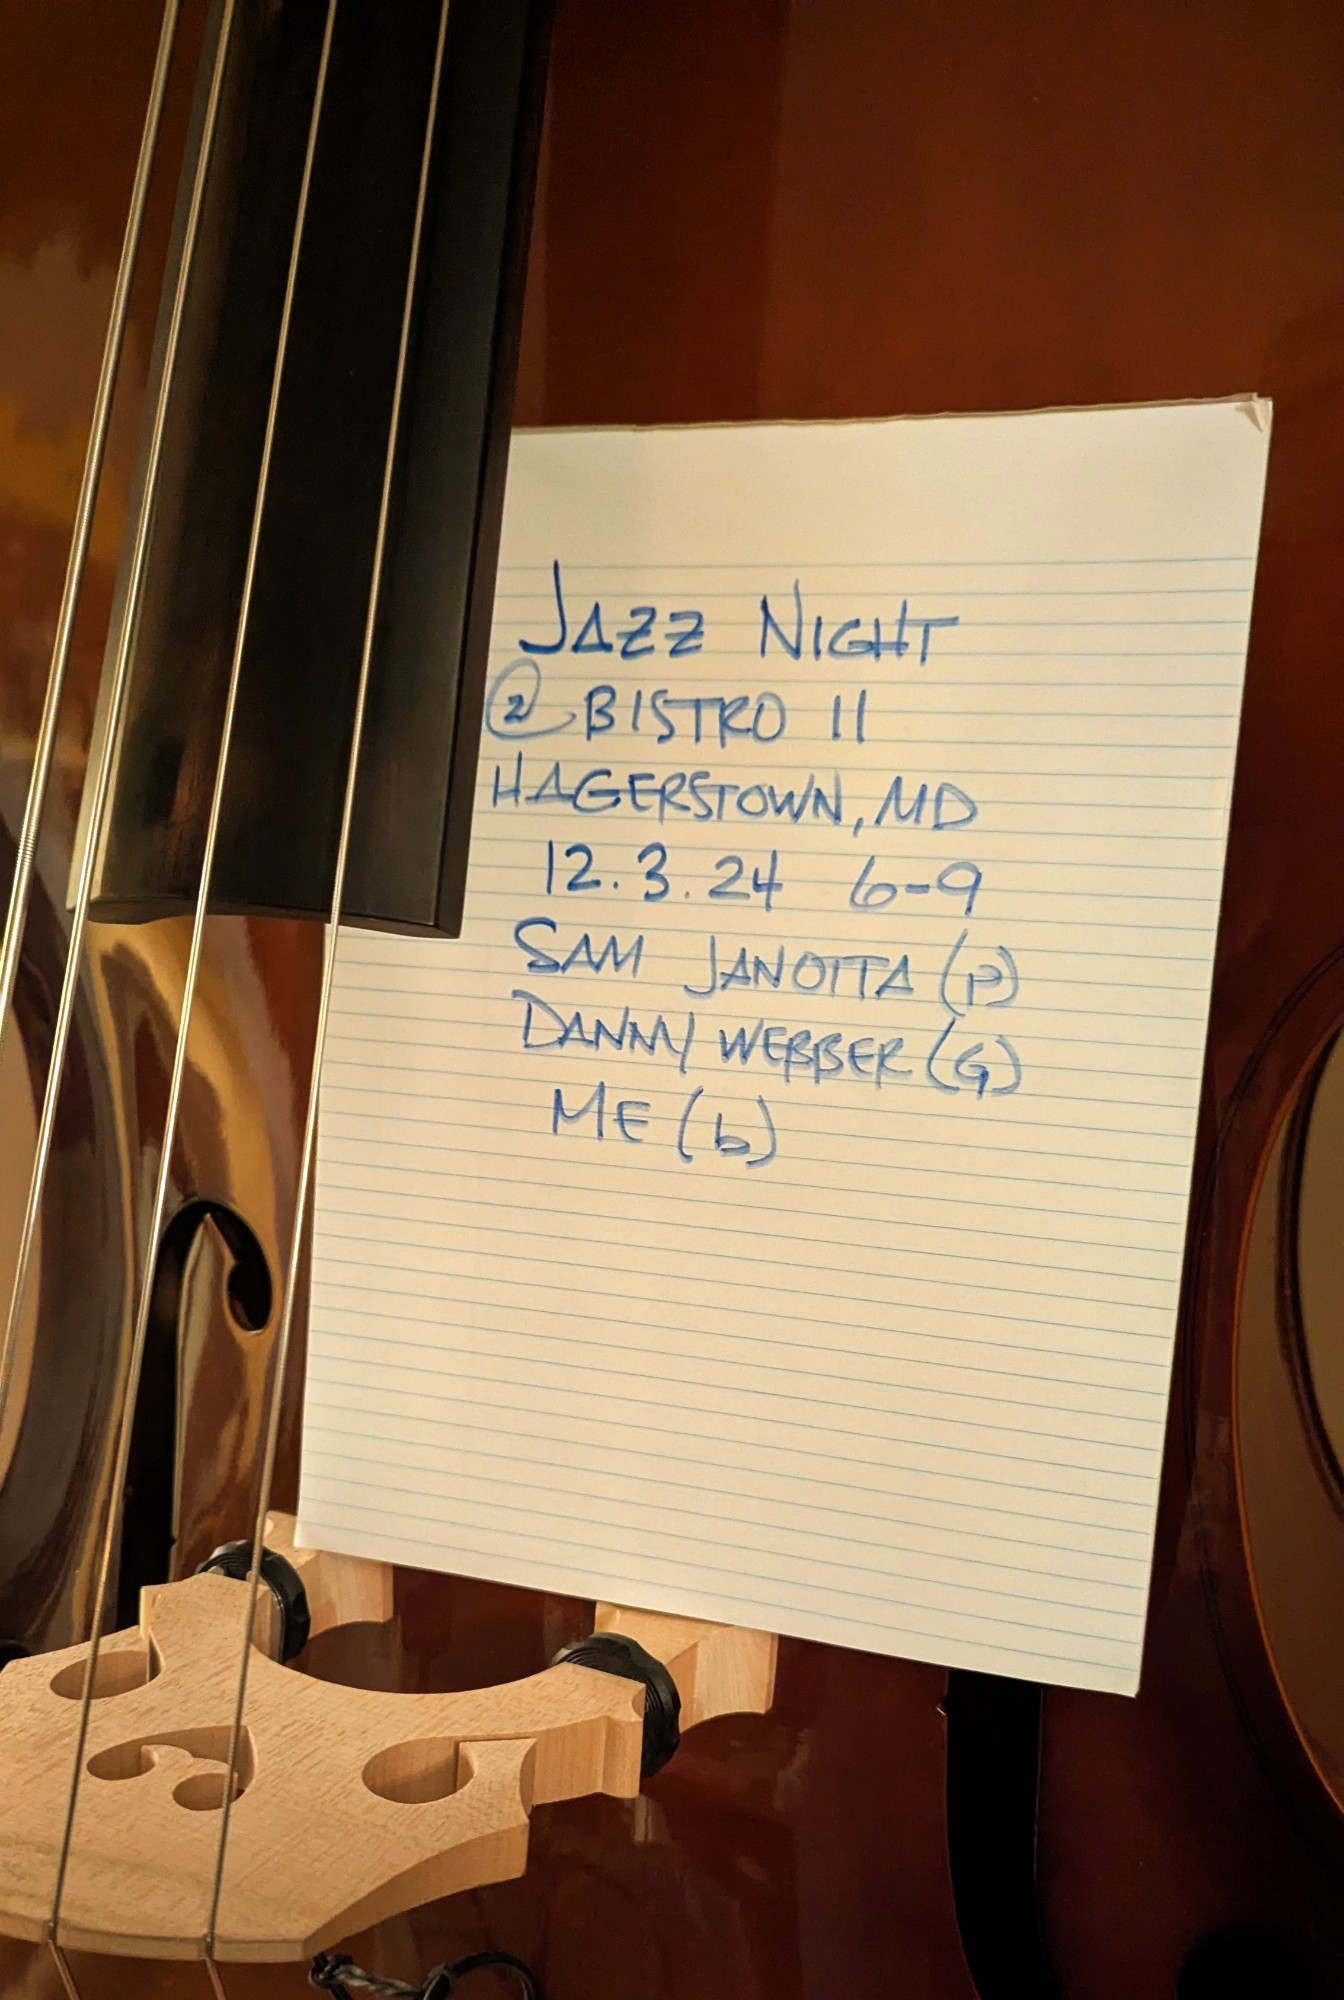 JAZZ NIGHT
@ BISTRO 11
HAGERSTOWN, MD
12.3.24 6-9
SAM JANOTTA (P)
DANNY WEBBER (G)
ME (b)